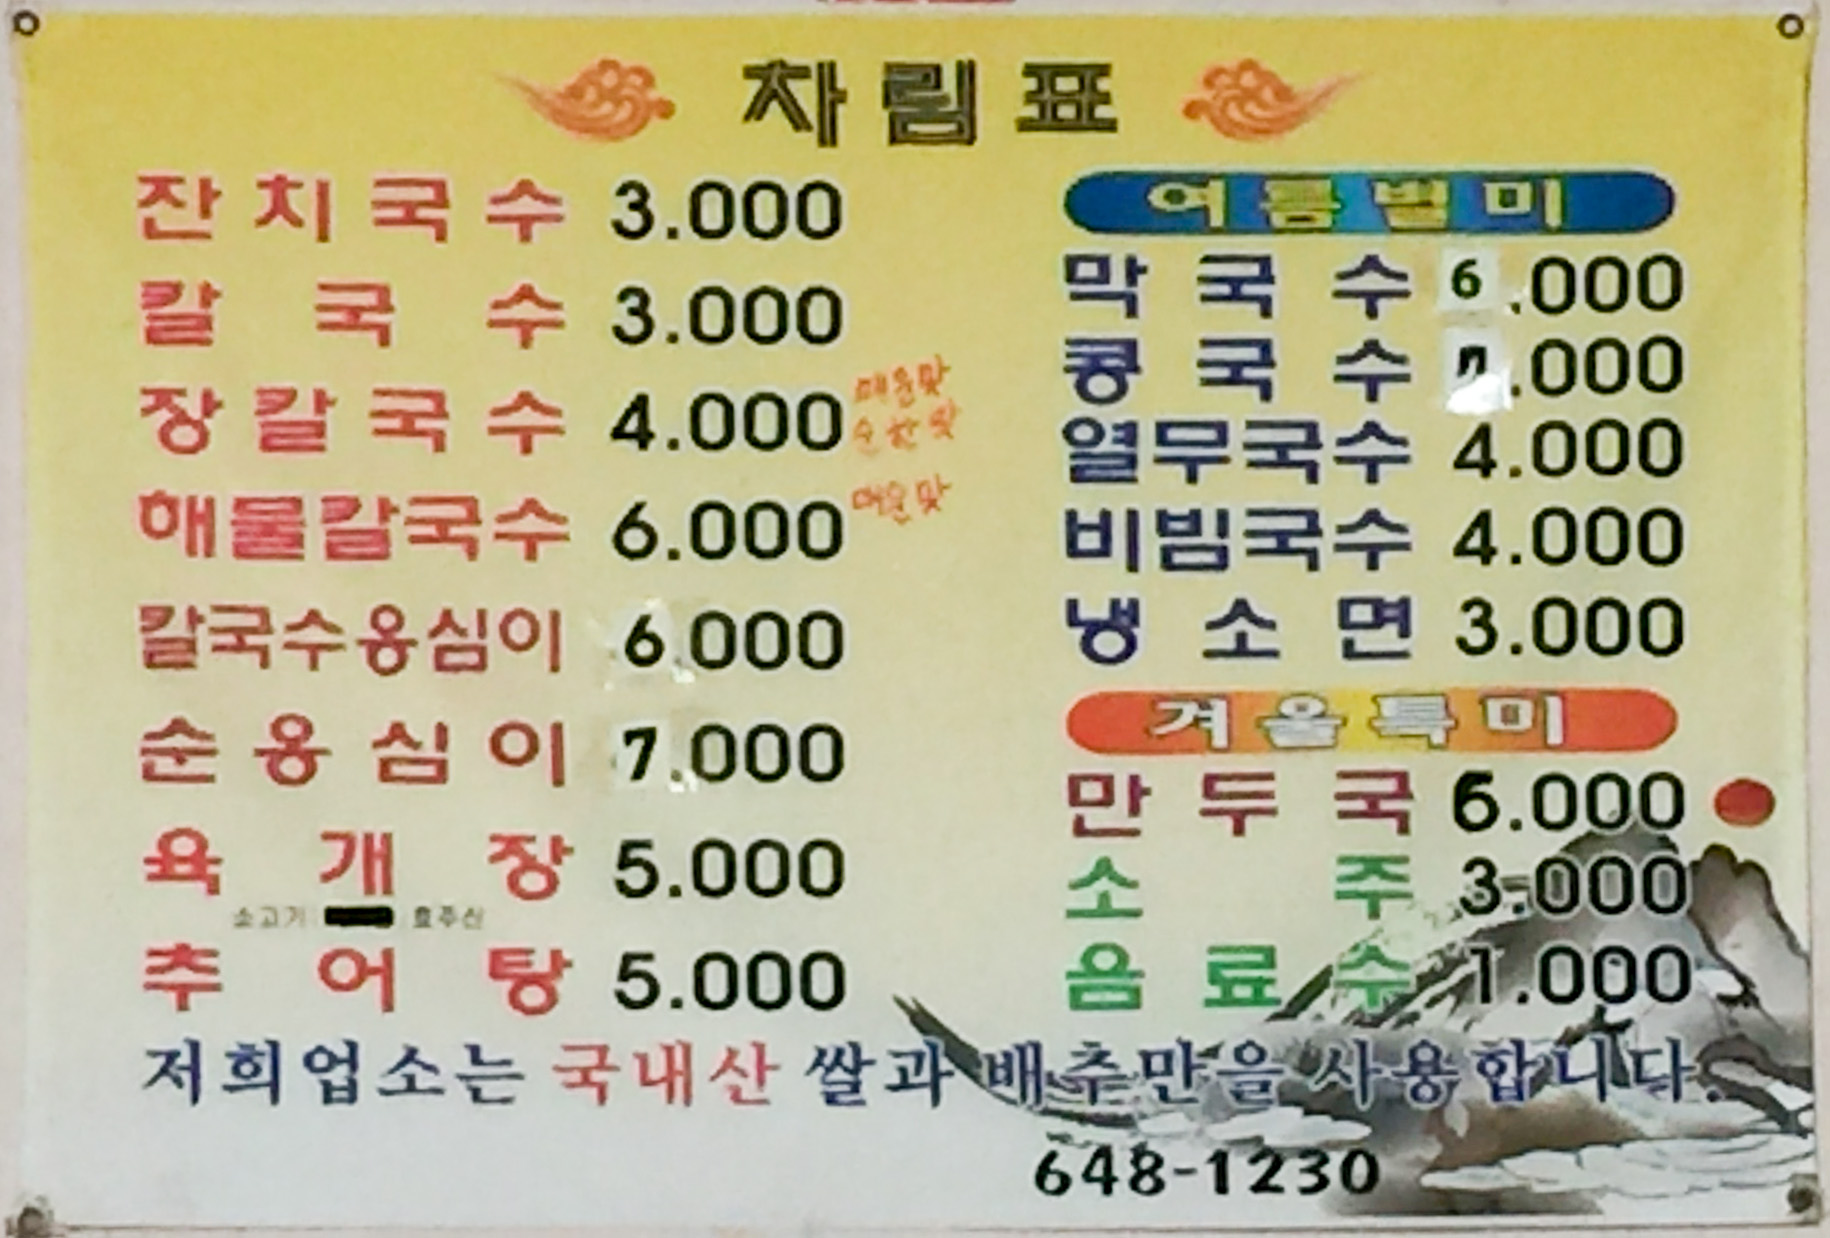 차림표
잔치국수 3.000
칼국수 3.000
장칼국수 4.000 매운맛
순한맛
해물칼국수 6.000 매운맛
칼국수옹심이 6.000
순옹심이 7.000
육개장 5.000
소고기: 호주산
추어탕 5.000
여름별미
막국수 6.000
콩국수 7.000
열무국수 4.000
비빔국수 4.000
냉소면 3.000
겨울특미
만두국 6.000
소주 3.000
음료수 1.000
저희업소는 국내산 쌀과 배추만을 사용합니다.
648-1230